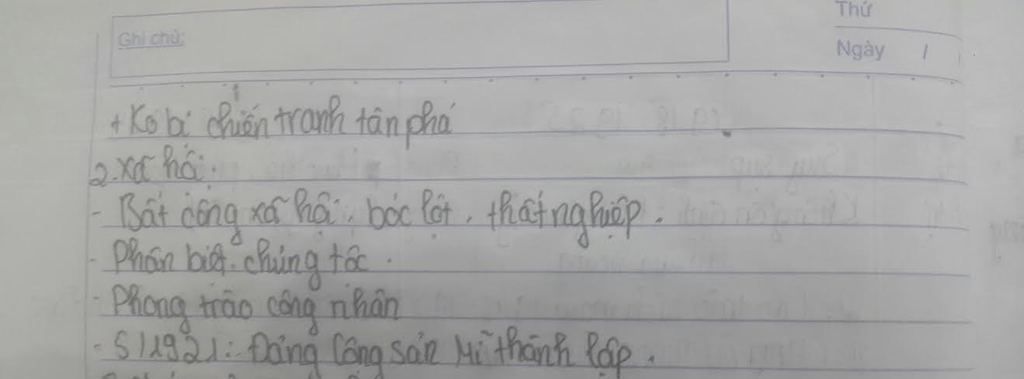 Thứ
Ghi chú:
Ngày /
+ Ko bị chiến tranh tàn phá
2. Xã hội.
- Bất công xã hội, bóc lột, thất nghiệp.
- Phân biệt chủng tộc.
- Phong trào công nhân
- 5/1921: Đảng Cộng sản Mĩ thành lập.